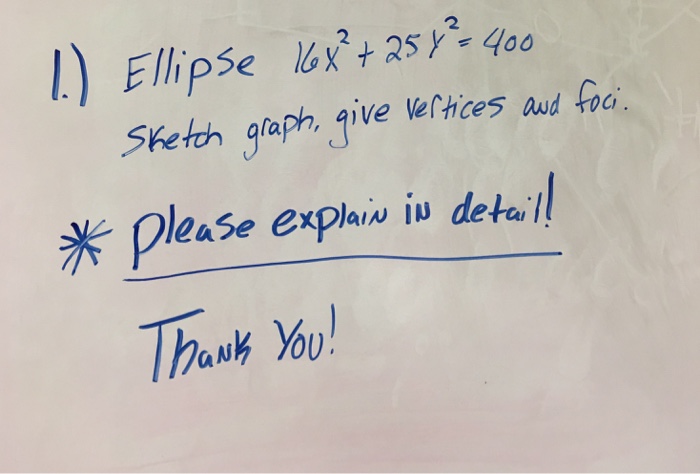 1.) Ellipse 16x² + 25y² = 400
Sketch graph, give vertices and foci.
* Please explain in detail!
Thank You!